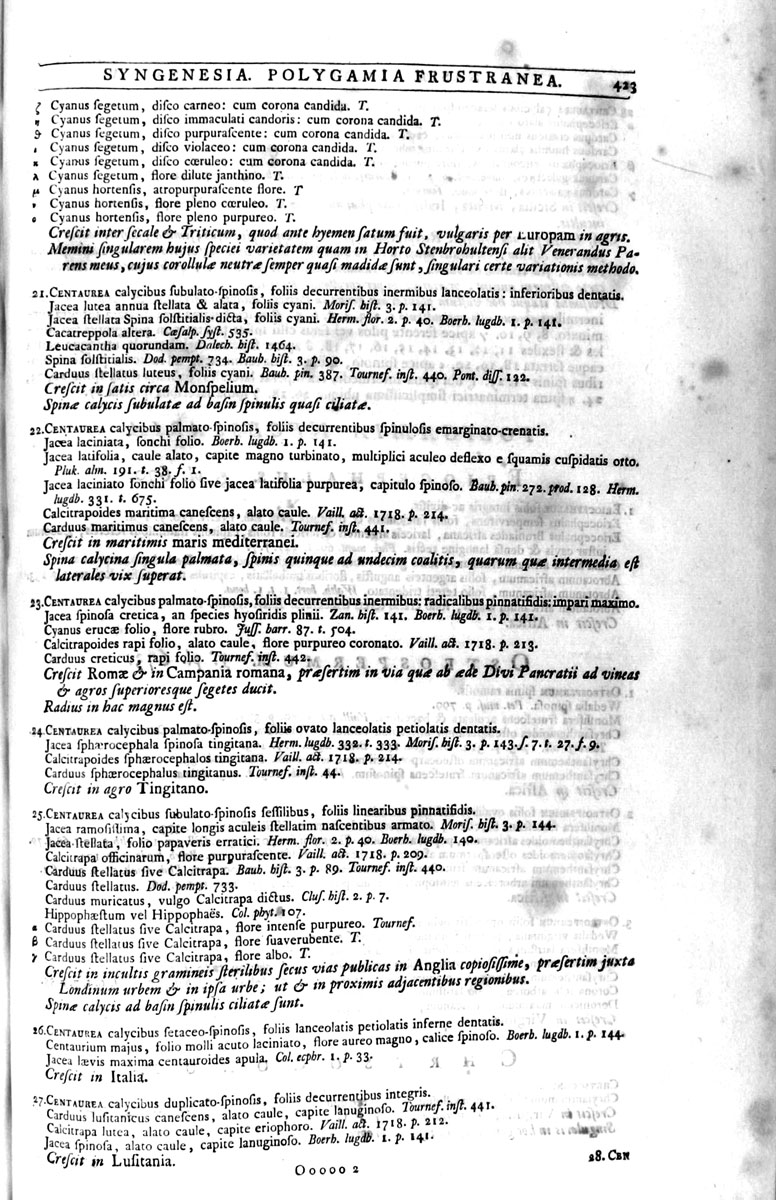 SYNGENESIA. POLYGAMIA FRUSTRANEA. 423
ζ Cyanus ſegetum, diſco carneo: cum corona candida. T.
η Cyanus ſegetum, diſco immaculati candoris: cum corona candida. T.
ϑ Cyanus ſegetum, diſco purpuraſcente: cum corona candida. T.
ι Cyanus ſegetum, diſco violaceo: cum corona candida. T.
κ Cyanus ſegetum, diſco cœruleo: cum corona candida. T.
λ Cyanus ſegetum, flore dilute janthino. T.
μ Cyanus hortenſis, atropurpuraſcente flore. T
ν Cyanus hortenſis, flore pleno cœruleo. T.
ο Cyanus hortenſis, flore pleno purpureo. T.
Creſcit inter ſecale & Triticum, quod ante hyemen ſatum fuit, vulgaris per Europam in agris.
Memini ſingularem hujus ſpeciei varietatem quam in Horto Stenbrohultenſi alit Venerandus Pa-
rens meus, cujus corollulæ neutræ ſemper quaſi madidæ ſunt, ſingulari certe variationis methodo.
21. CENTAUREA calycibus ſubulato-ſpinoſis, foliis decurrentibus inermibus lanceolatis: inferioribus dentatis.
Jacea lutea annua ſtellata & alata, foliis cyani. Moriſ. hiſt. 3. p. 141.
Jacea ſtellata Spina ſolſtitialis dicta, foliis cyani. Herm. flor. 2. p. 40. Boerh. lugdb. 1. p. 141.
Cacarreppola altera. Cæſalp. ſyſt. 535.
Leucacantha quorundam. Dalech. hiſt. 1464.
Spina ſolſtitialis. Dod. pempt. 734. Bauh. hiſt. 3. p. 90.
Carduus ſtellatus luteus, foliis cyani. Bauh. pin. 387. Tournef. inſt. 440. Pont. diſſ. 122.
Creſcit in ſatis circa Monſpelium.
Spinæ calycis ſubulatæ ad baſin ſpinulis quaſi ciliatæ.
22. CENTAUREA calycibus palmato-ſpinoſis, foliis decurrentibus ſpinuloſis emarginato-crenatis.
Jacea laciniata, ſonchi folio. Boerh. lugdb. 1. p. 141.
Jacea latifolia, caule alato, capite magno turbinato, multiplici aculeo deflexo e ſquamis cuſpidatis orto.
Pluk. alm. 191. t. 38. f. 1.
Jacea laciniato ſonchi folio ſive jacea latifolia purpurea, capitulo ſpinoſo. Bauh. pin. 272. prod. 128. Herm.
lugdb. 331. t. 675.
Calcitrapoides maritima caneſcens, alato caule. Vaill. act. 1718. p. 214.
Carduus maritimus caneſcens, alato caule. Tournef. inſt. 441.
Creſcit in maritimis maris mediterranei.
Spina calycina ſingula palmata, ſpinis quinque ad undecim coalitis, quarum quæ intermedia eſt
laterales vix ſuperat.
23. CENTAUREA calycibus palmato-ſpinoſis, foliis decurrentibus inermibus; radicalibus pinnatifidis; impari maximo.
Jacea ſpinoſa cretica, an ſpecies hyoſiridis plinii. Zan. hiſt. 141. Boerh. lugdb. 1. p. 141.
Cyanus erucæ folio, flore rubro. Juſſ. barr. 87. t. 504.
Calcitrapoides rapi folio, alato caule, flore purpureo coronato. Vaill. act. 1718. p. 213.
Carduus creticus, rapi folio. Tournef. inſt. 442.
Creſcit Romæ & in Campania romana, præſertim in via quæ ab æde Divi Pancratii ad vineas
& agros ſuperioresque ſegetes ducit.
Radius in hac magnus eſt.
24. CENTAUREA calycibus palmato-ſpinoſis, foliis ovato lanceolatis petiolatis dentatis.
Jacea ſphærocephala ſpinoſa tingitana. Herm. lugdb. 332. t. 333. Moriſ. hiſt. 3. p. 143. ſ. 7. t. 27. f. 9.
Calcitrapoides ſphærocephalos tingitana. Vaill. act. 1718. p. 214.
Carduus ſphærocephalus tingitanus. Tournef. inſt. 44.
Creſcit in agro Tingitano.
25. CENTAUREA calycibus ſubulato-ſpinoſis ſeſſilibus, foliis linearibus pinnatifidis.
Jacea ramoſiſſima, capite longis aculeis ſtellatim naſcentibus armato. Moriſ. hiſt. 3. p. 144.
Jacea ſtellata, folio papaveris erratici. Herm. flor. 2. p. 40. Boerh. lugdb. 140.
Calcitrapa officinarum, flore purpuraſcente. Vaill. act. 1718. p. 209.
Carduus ſtellatus ſive Calcitrapa. Bauh. hiſt. 3. p. 89. Tournef. inſt. 440.
Carduus ſtellatus. Dod. pempt. 733.
Carduus muricatus, vulgo Calcitrapa dictus. Cluſ. hiſt. 2. p. 7.
Hippophæſtum vel Hippophaës. Col. phyt. 107.
α Carduus ſtellatus ſive Calcitrapa, flore intenſe purpureo. Tournef.
β Carduus ſtellatus ſive Calcitrapa, flore ſuaverubente. T.
γ Carduus ſtellatus ſive Calcitrapa, flore albo. T.
Creſcit in incultis gramineis ſterilibus ſecus vias publicas in Anglia copioſiſſime, præſertim juxta
Londinum urbem & in ipſa urbe; ut & in proximis adjacentibus regionibus.
Spinæ calycis ad baſin ſpinulis ciliatæ ſunt.
26. CENTAUREA calycibus ſetaceo-ſpinoſis, foliis lanceolatis petiolatis inferne dentatis.
Centaurium majus, folio molli acuto laciniato, flore aureo magno, calice ſpinoſo. Boerh. lugdb. 1. p. 144.
Jacea lævis maxima centauroides apula. Col. ecphr. 1. p. 33.
Creſcit in Italia.
27. CENTAUREA calycibus duplicato-ſpinoſis, foliis decurrentibus integris.
Carduus luſitanicus caneſcens, alato caule, capite lanuginoſo. Tournef. inſt. 441.
Calcitrapa lutea, alato caule, capite eriophoro. Vaill. act. 1718. p. 212.
Jacea ſpinoſa, alato caule, capite lanuginoſo. Boerh. lugdb. 1. p. 141.
Creſcit in Luſitania.
Ooooo 2
28. CEN